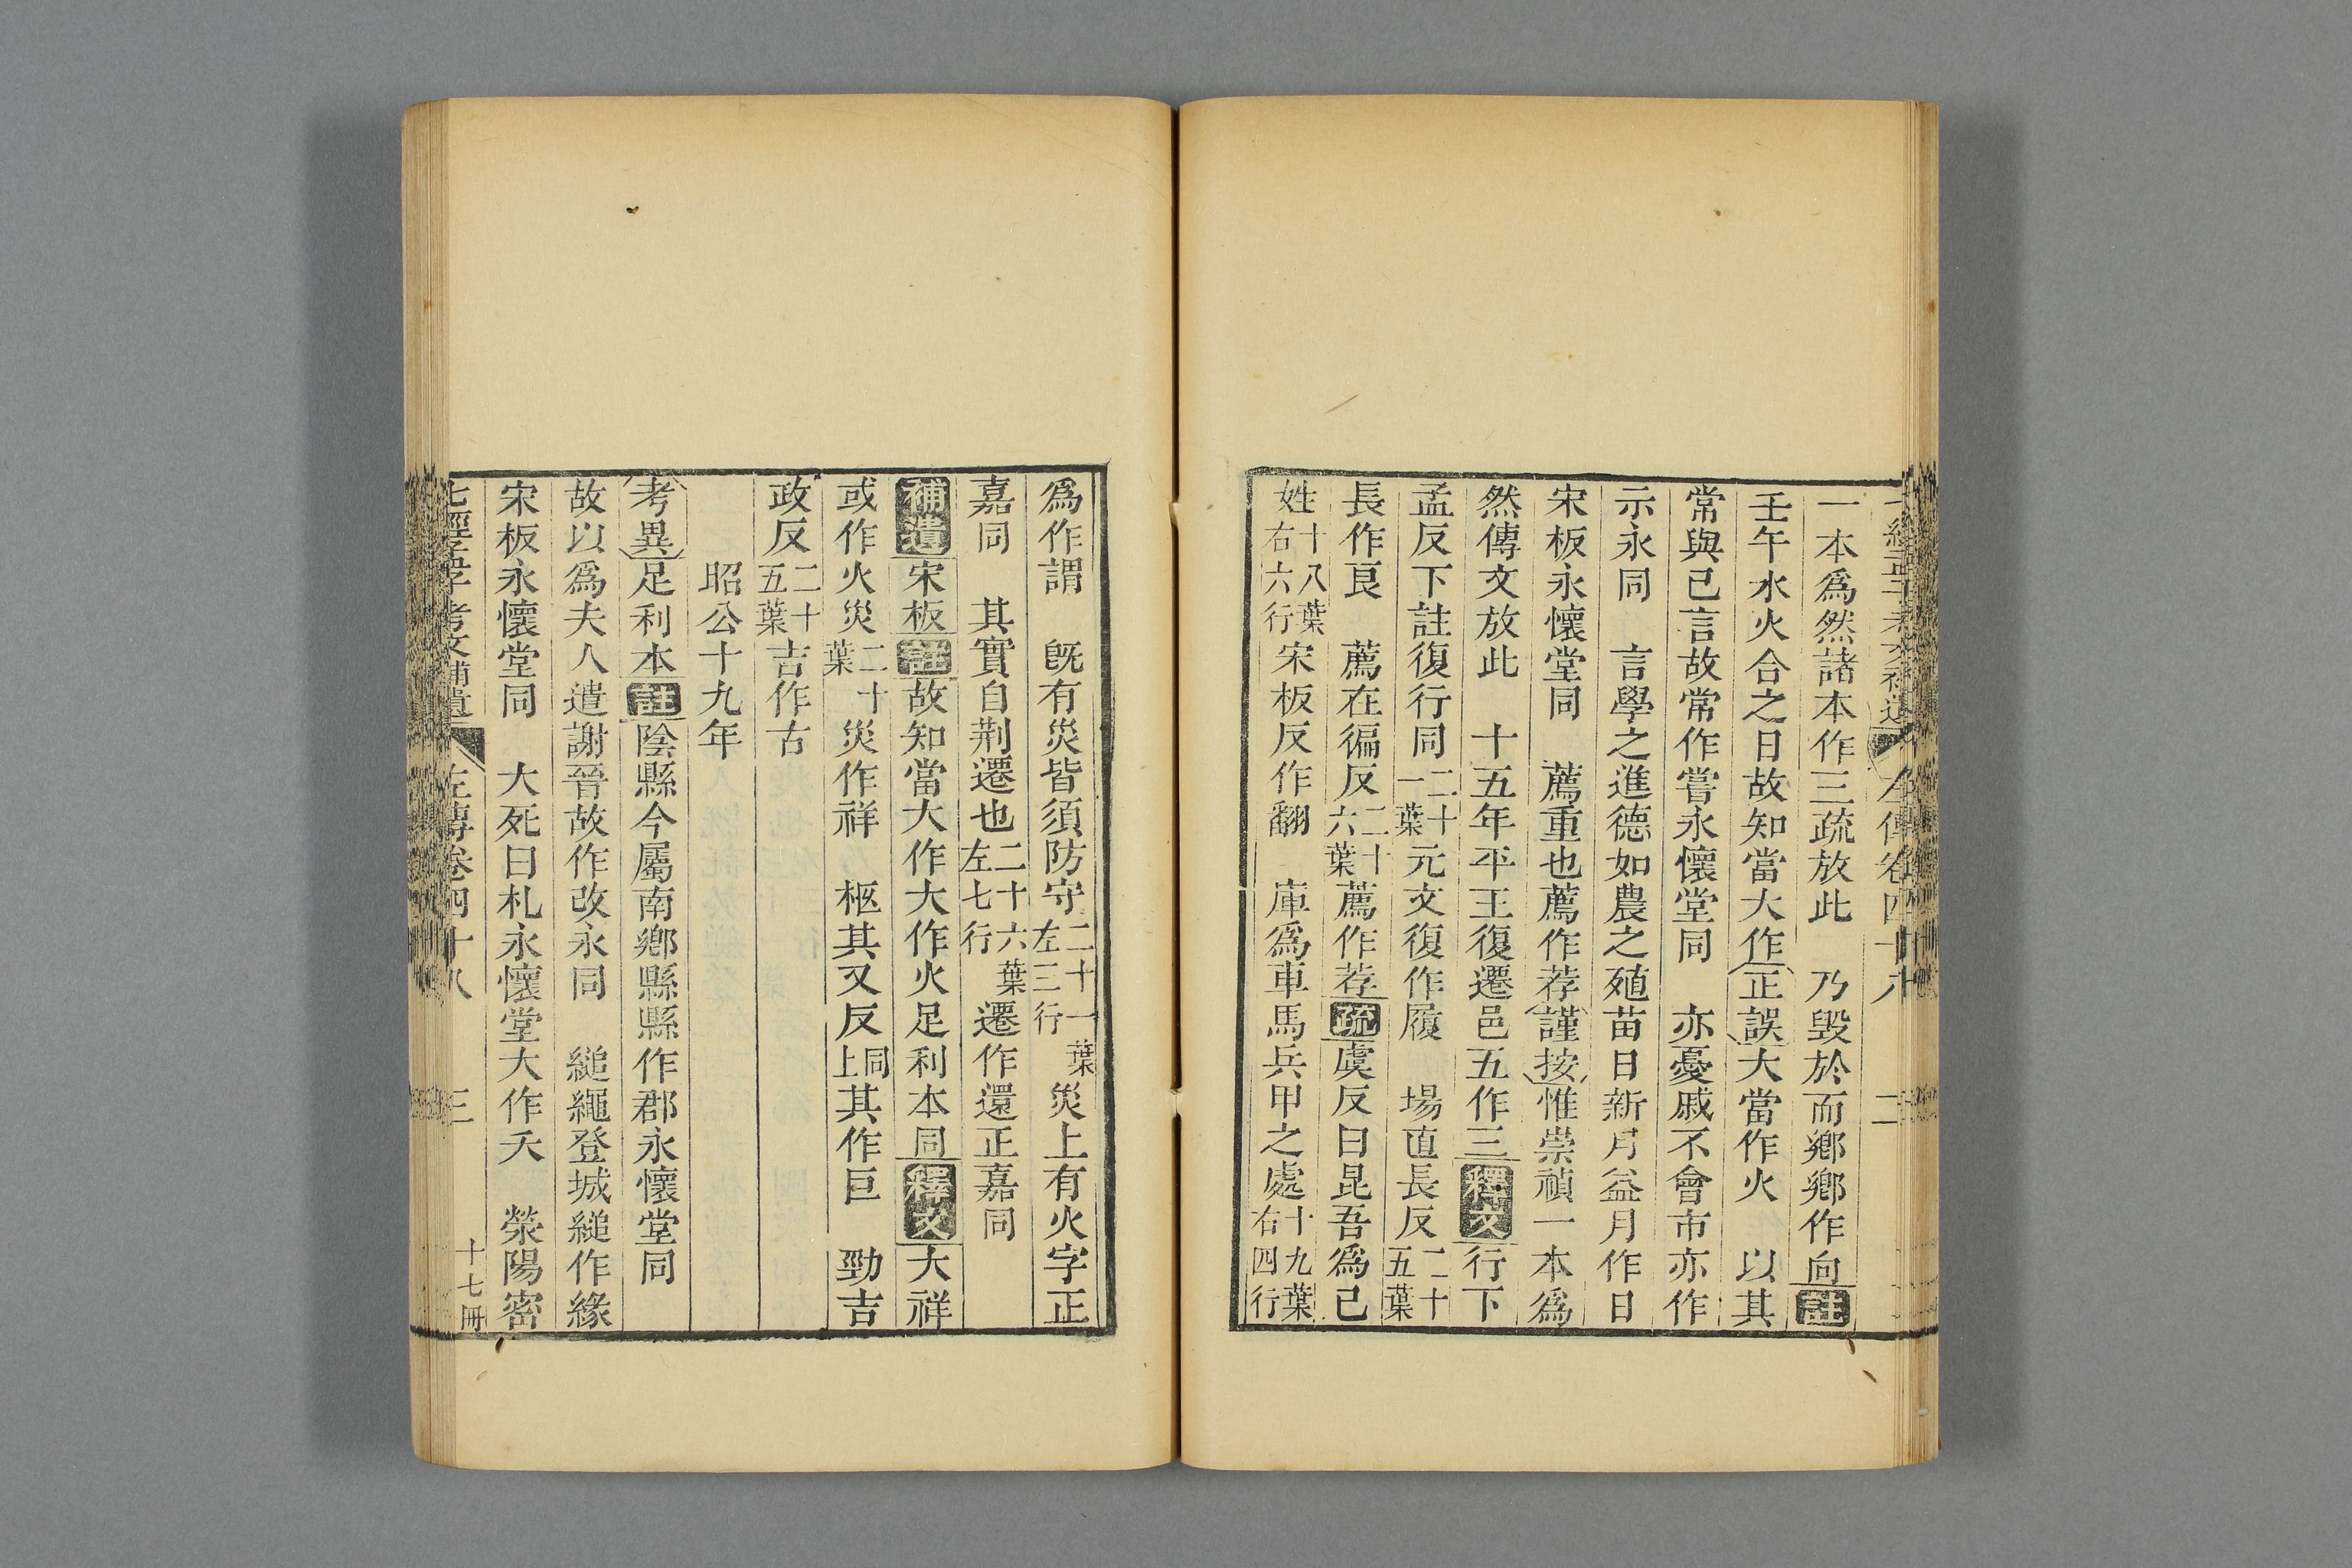 一本爲然諸本作三疏放此　乃毀於而鄉鄉作向註
壬午水火合之日故知當大作正誤大當作火　以其
常與已言故常作嘗永懷堂同　亦憂戚不會市亦作
示永同　言學之進德如農之殖苗日新月益月作日
宋板永懷堂同　薦重也薦作荐謹按惟崇禎一本爲
然傳文放此　十五年平王復遷邑五作三釋文行下
孟反下註復行同二十一葉元文復作履　場直長反二十五葉
長作艮　薦在徧反二十六葉薦作荐疏虞反曰昆吾爲己
姓十八葉右六行宋板反作翻　庫爲車馬兵甲之處十九葉右四行
爲作謂　旣有災皆須防守二十一葉左三行災上有火字正
嘉同　其實自荆遷也二十六葉左七行遷作還正嘉同
補遺宋板註故知當大作大作火足利本同釋文大祥
或作火災二十葉災作祥　柩其又反同上其作巨　勁吉
政反二十五葉吉作古
昭公十九年
考異足利本註陰縣今屬南鄉縣縣作郡永懷堂同
故以爲夫人遣謝晉故作改永同　縋繩登城縋作緣
宋板永懷堂同　大死曰札永懷堂大作夭　滎陽密
七經孟子考文補遺　左傳卷四十八　三　十七冊